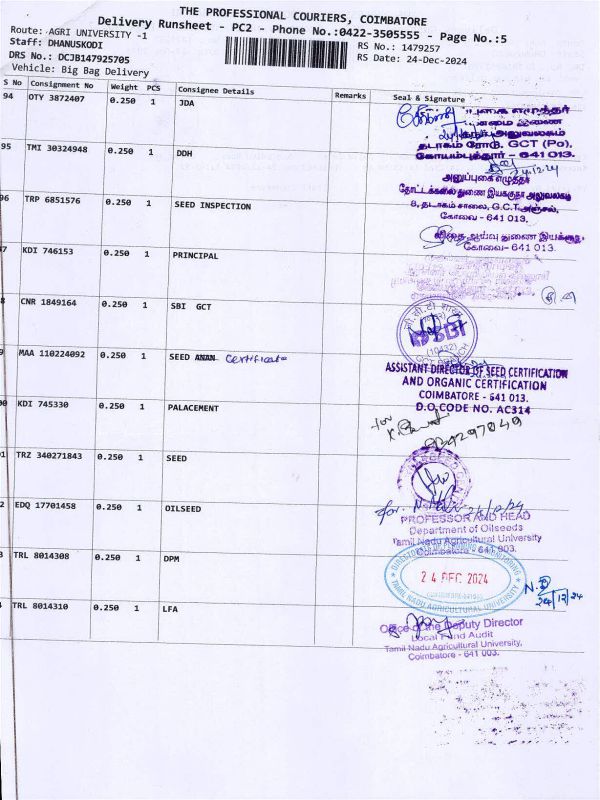 THE PROFESSIONAL COURIERS, COIMBATORE
Delivery Runsheet - PC2 - Phone No.:0422-3505555 - Page No.:5
Route: AGRI UNIVERSITY -1
Staff: DHANUSKODI
RS No.: 1479257
DRS No.: DCJB147925705
RS Date: 24-Dec-2024
Vehicle: Big Bag Delivery
S No Consignment No Weight PCS Consignee Details Remarks Seal & Signature
94 OTY 3872407 0.250 1 JDA
தடாகம் ரோடு, GCT (Po),
கோயம்புத்தூர் - 641 013.
95 TMI 30324948 0.250 1 DDH
24.12.24
அனுப்புகை எழுத்தர்
தோட்டக்கலை துணை இயக்குநர் அலுவலகம்
8, தடாகம் சாலை, G.C.T. அஞ்சல்,
கோவை - 641 013.
96 TRP 6851576 0.250 1 SEED INSPECTION
விதை ஆய்வு துணை இயக்குநர்
கோவை - 641 013.
7 KDI 746153 0.250 1 PRINCIPAL
CNR 1849164 0.250 1 SBI GCT
SBI
(10432)
9 MAA 110224092 0.250 1 SEED Certificate
ASSISTANT DIRECTOR OF SEED CERTIFICATION
AND ORGANIC CERTIFICATION
COIMBATORE - 641 013.
D.O.CODE NO. AC314
KDI 745330 0.250 1 PALACEMENT
for
TRZ 340271843 0.250 1 SEED
2 EDQ 17701458 0.250 1 OILSEED
for. 24/12/24
PROFESSOR AND HEAD
Department of Oilseeds
Tamil Nadu Agricultural University
Coimbatore - 641 003.
TRL 8014308 0.250 1 DPM
24 DEC 2024
TAMIL NADU AGRICULTURAL UNIVERSITY
24/12/24
TRL 8014310 0.250 1 LFA
Office of the Deputy Director
Local Fund Audit
Tamil Nadu Agricultural University,
Coimbatore - 641 003.